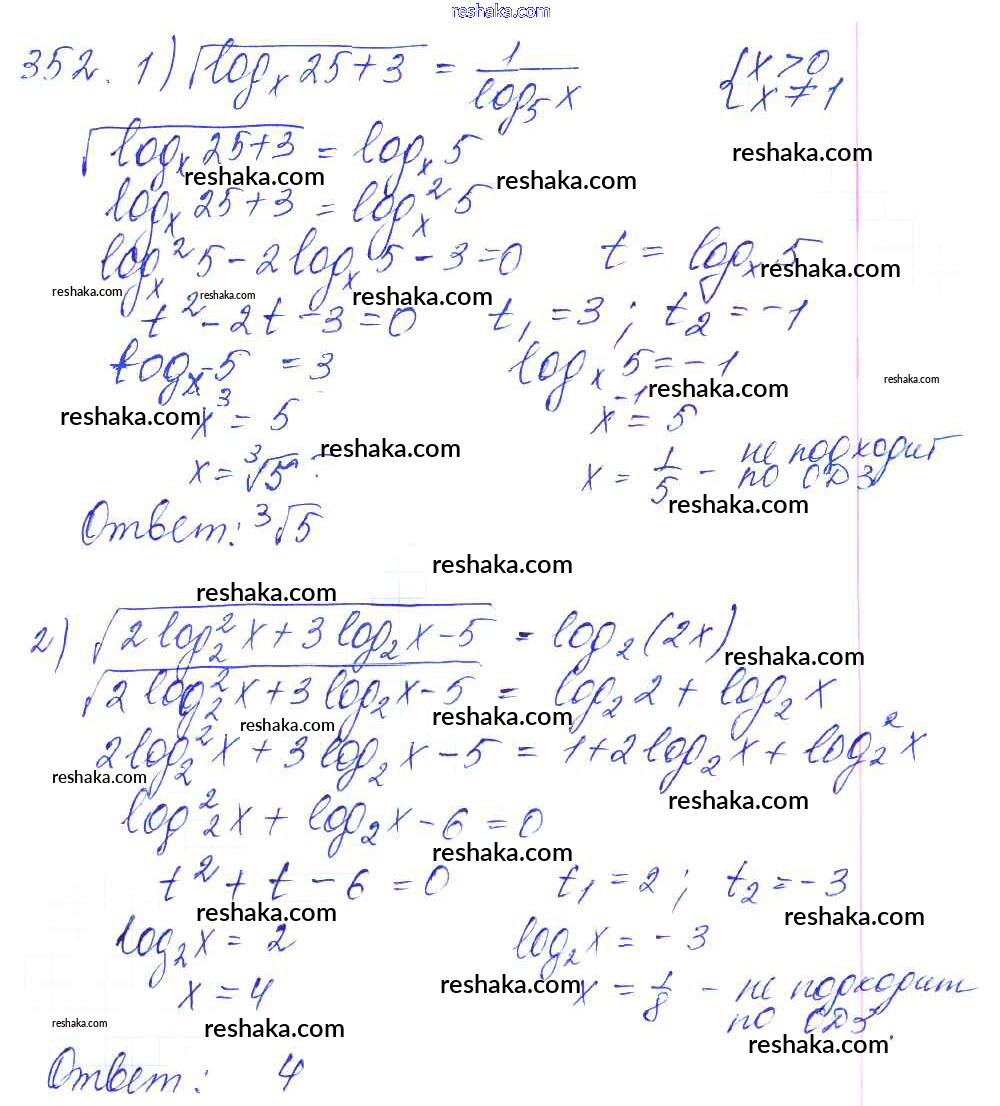 reshaka.com
352. 1) √(logₓ 25 + 3) = 1/(log₅ x) {x > 0
x ≠ 1
√(logₓ 25 + 3) = logₓ 5 reshaka.com
reshaka.com reshaka.com
logₓ 25 + 3 = logₓ² 5
logₓ² 5 - 2 logₓ 5 - 3 = 0 t = logₓ 5
reshaka.com reshaka.com reshaka.com reshaka.com
t² - 2t - 3 = 0 t₁ = 3 ; t₂ = -1
logₓ 5 = 3 logₓ 5 = -1
reshaka.com reshaka.com
reshaka.com x³ = 5 x⁻¹ = 5
x = ∛5 reshaka.com x = 1/5 - не подходит
по ОДЗ
reshaka.com
Ответ: ∛5
reshaka.com
reshaka.com
2) √(2 log₂² x + 3 log₂ x - 5) = log₂ (2x)
reshaka.com
√(2 log₂² x + 3 log₂ x - 5) = log₂ 2 + log₂ x
reshaka.com reshaka.com
2 log₂² x + 3 log₂ x - 5 = 1 + 2 log₂ x + log₂² x
reshaka.com reshaka.com
log₂² x + log₂ x - 6 = 0
reshaka.com
t² + t - 6 = 0 t₁ = 2 ; t₂ = -3
reshaka.com reshaka.com
log₂ x = 2 log₂ x = -3
x = 4 reshaka.com x = 1/8 - не подходит
по ОДЗ.
reshaka.com reshaka.com reshaka.com
Ответ: 4